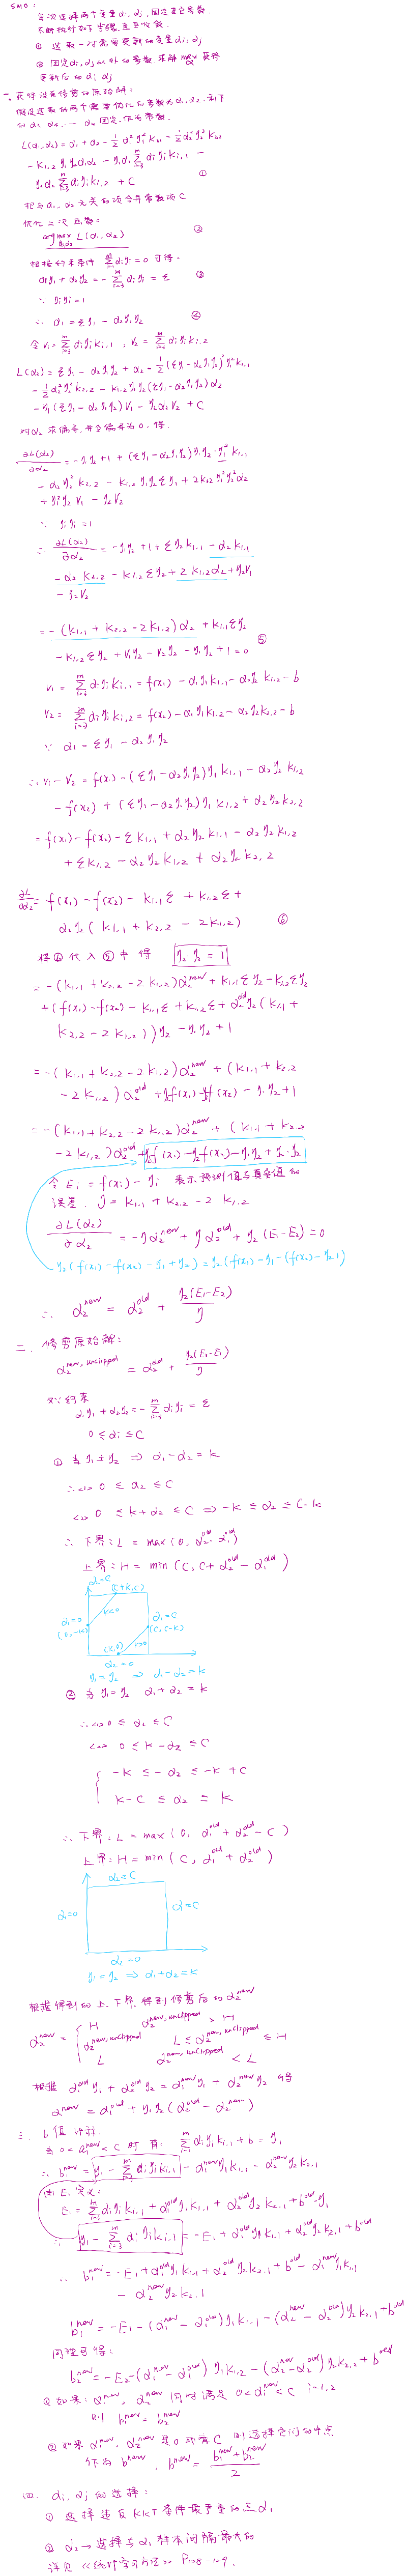 SMO:
每次选择两个变量 αi, αj, 固定其它参数.
不断执行如下步骤, 直至收敛.
① 选取一对需要更新的变量 αi, αj
② 固定 αi, αj 以外的参数, 求解 max 获得
更新后的 αi αj
一. 获得没有修剪的原始解:
假设选取的两个需要优化的参数为 α1, α2. 剩下
的 α3 α4 … αm 固定. 作为常数.
L(α1,α2) = α1 + α2 - 1/2 α1² y1² K1,1 - 1/2 α2² y2² K2,2
- K1,2 y1 y2 α1 α2 - y1 α1 Σ_{i=3}^m αi yi Ki,1 -
y2 α2 Σ_{i=3}^m αi yi Ki,2 + C ①
把与 α1, α2 无关的项合并常数项 C
优化二次函数:
argmax_{α1,α2} L(α1,α2) ②
根据约束条件 Σ_{i=1}^m αi yi = 0 可得:
α1 y1 + α2 y2 = - Σ_{i=3}^m αi yi = ξ ③
∵ yi yi = 1
∴ α1 = ξ y1 - α2 y1 y2 ④
令 V1 = Σ_{i=3}^m αi yi Ki,1, V2 = Σ_{i=3}^m αi yi Ki,2
L(α2) = ξ y1 - α2 y1 y2 + α2 - 1/2 (ξ y1 - α2 y1 y2)² y1² K1,1
- 1/2 α2² y2² K2,2 - K1,2 y1 y2 (ξ y1 - α2 y1 y2) α2
- y1 (ξ y1 - α2 y1 y2) V1 - y2 α2 V2 + C
对 α2 求偏导, 并令偏导为 0, 得.
∂L(α2)/∂α2 = - y1 y2 + 1 + (ξ y1 - α2 y1 y2) y1 y2 · y1² K1,1
- α2 y2² K2,2 - K1,2 y1 y2 ξ y1 + 2 K1,2 y1² y2² α2
+ y1² y2 V1 - y2 V2
∵ yi yi = 1
∴ ∂L(α2)/∂α2 = - y1 y2 + 1 + ξ y2 K1,1 - α2 K1,1
- α2 K2,2 - K1,2 ξ y2 + 2 K1,2 α2 + y2 V1
- y2 V2
= - (K1,1 + K2,2 - 2 K1,2) α2 + K1,1 ξ y2
- K1,2 ξ y2 + V1 y2 - V2 y2 - y1 y2 + 1 = 0 ⑤
V1 = Σ_{i=3}^m αi yi Ki,1 = f(x1) - α1 y1 K1,1 - α2 y2 K1,2 - b
V2 = Σ_{i=3}^m αi yi Ki,2 = f(x2) - α1 y1 K1,2 - α2 y2 K2,2 - b
∵ α1 = ξ y1 - α2 y1 y2
∴ V1 - V2 = f(x1) - (ξ y1 - α2 y1 y2) y1 K1,1 - α2 y2 K1,2
- f(x2) + (ξ y1 - α2 y1 y2) y1 K1,2 + α2 y2 K2,2
= f(x1) - f(x2) - ξ K1,1 + α2 y2 K1,1 - α2 y2 K1,2
+ ξ K1,2 - α2 y2 K1,2 + α2 y2 K2,2
∂L/∂α2 = f(x1) - f(x2) - K1,1 ξ + K1,2 ξ +
α2 y2 (K1,1 + K2,2 - 2 K1,2) ⑥
将 ⑥ 代入 ⑤ 中 得 y2 · y2 = 1
= - (K1,1 + K2,2 - 2 K1,2) α2^new + K1,1 ξ y2 - K1,2 ξ y2
+ (f(x1) - f(x2) - K1,1 ξ + K1,2 ξ + α2^old y2 (K1,1 +
K2,2 - 2 K1,2)) y2 - y1 y2 + 1
= - (K1,1 + K2,2 - 2 K1,2) α2^new + (K1,1 + K2,2
- 2 K1,2) α2^old + y2 f(x1) - y2 f(x2) - y1 y2 + 1
= - (K1,1 + K2,2 - 2 K1,2) α2^new + (K1,1 + K2,2
- 2 K1,2) α2^old + y2 f(x1) - y2 f(x2) - y1 y2 + y2 · y2
令 Ei = f(xi) - yi 表示预测值与真实值的
误差. η = K1,1 + K2,2 - 2 K1,2
∂L(α2)/∂α2 = - η α2^new + η α2^old + y2 (E1 - E2) = 0
y2 (f(x1) - f(x2) - y1 + y2) = y2 (f(x1) - y1 - (f(x2) - y2))
∴ α2^new = α2^old + y2(E1 - E2)/η
二. 修剪原始解:
α2^new,unclipped = α2^old + y2(E1 - E2)/η
又∵ 约束
α1 y1 + α2 y2 = - Σ_{i=3}^m αi yi = ξ
0 ≤ αi ≤ C
① 当 y1 ≠ y2 ⇒ α1 - α2 = K
∴ <1> 0 ≤ α2 ≤ C
<2> 0 ≤ K + α2 ≤ C ⇒ -K ≤ α2 ≤ C - K
∴ 下界: L = max(0, α2^old - α1^old)
上界: H = min(C, C + α2^old - α1^old)
α2 = C (C+K, C)
α1 = 0 K<0 α1 = C
(0, -K) (C, C-K)
(K, 0) K>0
α2 = 0
y1 ≠ y2 ⇒ α1 - α2 = K
② 当 y1 = y2 α1 + α2 = K
∴ <1> 0 ≤ α2 ≤ C
<2> 0 ≤ K - α2 ≤ C
{ -K ≤ -α2 ≤ -K + C
K - C ≤ α2 ≤ K
∴ 下界: L = max(0, α1^old + α2^old - C)
上界: H = min(C, α1^old + α2^old)
α2 = C
α1 = 0 α1 = C
α2 = 0
y1 = y2 ⇒ α1 + α2 = K
根据得到的上、下界, 得到修剪后的 α2^new
α2^new = { H α2^new,unclipped > H
α2^new,unclipped L ≤ α2^new,unclipped ≤ H
L α2^new,unclipped < L
根据 α1^old y1 + α2^old y2 = α1^new y1 + α2^new y2 得
α1^new = α1^old + y1 y2 (α2^old - α2^new)
三. b 值计算.
当 0 < α1^new < C 时 有. Σ_{i=1}^m αi yi Ki,1 + b = y1
∴ b1^new = y1 - Σ_{i=3}^m αi yi Ki,1 - α1^new y1 K1,1 - α2^new y2 K2,1
由 E1 定义:
E1 = Σ_{i=3}^m αi yi Ki,1 + α1^old y1 K1,1 + α2^old y2 K2,1 + b^old - y1
∴ y1 - Σ_{i=3}^m αi yi Ki,1 = - E1 + α1^old y1 K1,1 + α2^old y2 K2,1 + b^old
∴ b1^new = - E1 + α1^old y1 K1,1 + α2^old y2 K2,1 + b^old - α1^new y1 K1,1
- α2^new y2 K2,1
b1^new = - E1 - (α1^new - α1^old) y1 K1,1 - (α2^new - α2^old) y2 K2,1 + b^old
同理可得:
b2^new = - E2 - (α1^new - α1^old) y1 K1,2 - (α2^new - α2^old) y2 K2,2 + b^old
① 如果: α1^new, α2^new 同时满足 0 < αi^new < C i = 1,2
则 b1^new = b2^new
② 如果 α1^new, α2^new 是 0 或者 C 则选择它们的中点
作为 b^new, b^new = (b1^new + b2^new)/2
四. αi, αj 的选择:
① 选择违反 KKT 条件最严重的点 α1
② α2 → 选择与 α1 样本间隔最大的
详见《统计学习方法》 P128-129.